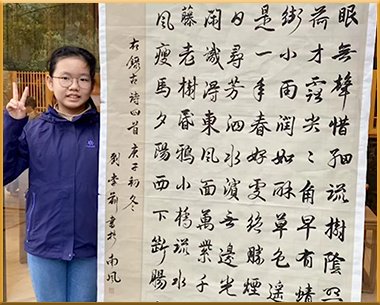 眼無聲惜細流樹陰照
荷才露尖々角早有蜻
街小雨潤如酥草色遙
是一年春好處絕勝煙
日尋芳泗水濱无邊光
閑識得東風面萬紫千
藤老樹昏鴉小橋流水
風瘦馬夕陽西下斷腸
右錄古詩四首庚子初冬
劉書於南風